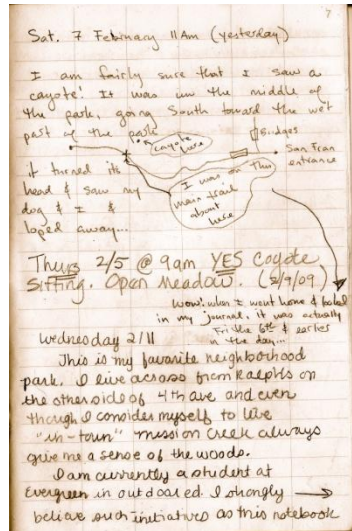 7
Sat. 7 February 11Am (yesterday)
I am fairly sure that I saw a
cayote! It was in the middle of
the park, going South toward the wet
part of the park
cayote here
Bridges
San Fran
entrance
it turned its
head & saw my
dog & I &
loped away...
I was on this
main trail
about
here
Thurs 2/5 @ 9am YES Coyote
Sitting. Open Meadow. (2/9/09)
Wow! when I went home & looked
in my journal, it was actually
Fri the 6th & earlier
in the day...
Wednesday 2/11
This is my favorite neighborhood
park. I live across from Ralphs on
the otherside of 4th ave and even
though I consider myself to live
"in-town" mission Creek always
give me a sense of the woods.
I am currently a student at
Evergreen in outdoor ed. I strongly
believe such initiatives as this notebook